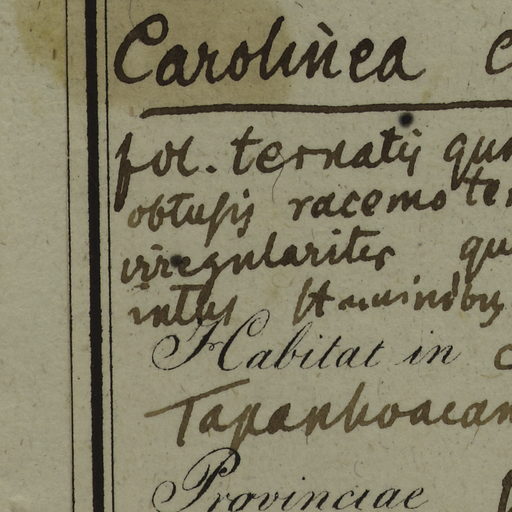 Carolinea c
fol. ternatis qui
obtusis racemo te
irregulariter qu
intus staminibus
Habitat in c
Tapanhoacan
Provinciae